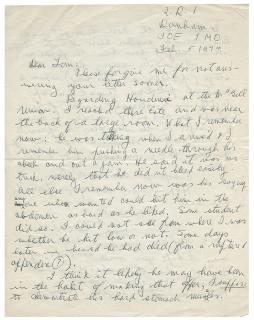 R R 1
Dunham
JOE 1MO
Feb. 5 1977
Dear Tom:
Please forgive me for not ans-
wering your letter sooner.
Regarding Houdini at the McGill
Union. I reached there late and was near
the back of a large room. What I remember
now: he was talking when I arrived & I
remember him pushing a needle through his
cheek and out again. He said it was no
trick, merely that he did it bled easily
all else I remember now was his saying
who wanted could hit him in the
abdomen as hard as he liked. Some student
did so. I could not see from where I was
whether he hit low or not. Some days
later we heard he had died from a ruptured
appendix (?).
I think it likely he may have been
in the habit of making that offer, I suppose
to demonstrate his hard stomach muscles.